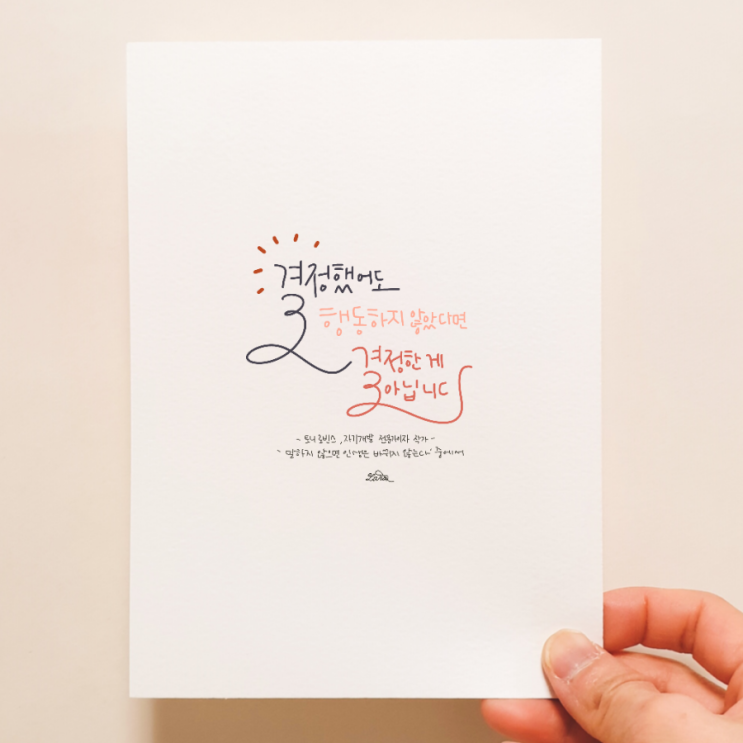 결정했어도
행동하지 않았다면
결정한 게
아닙니다
- 토니 로빈스, 자기개발 전문가이자 작가 -
' 말하지 않으면 인생은 바뀌지 않는다' 중에서